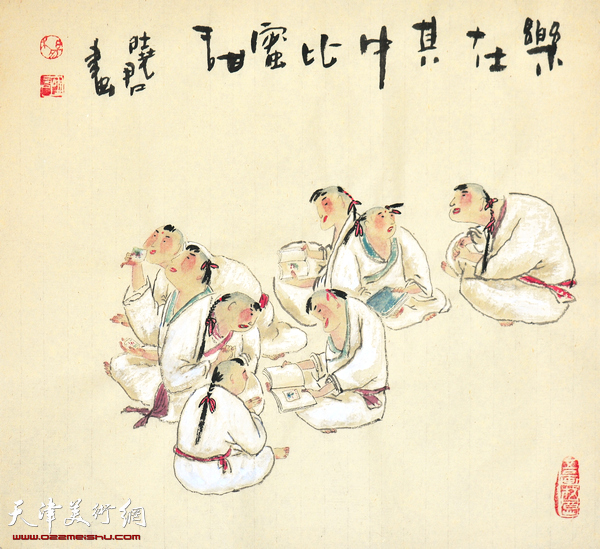 樂在其中比蜜甜
曉君
畫
天津美術網
www.022meishu.com